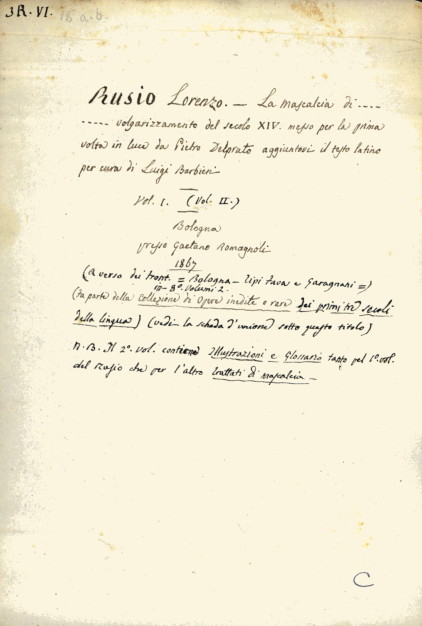 3R. VI. 15 a.b.
Rusio Lorenzo. — La mascalcia di ----
----- volgarizzamento del secolo XIV. messo per la prima
volta in luce da Pietro Delprato aggiuntovi il testo latino
per cura di Luigi Barbieri
Vol. I. (Vol. II.)
Bologna
presso Gaetano Romagnoli
1867
(A verso dei front. = Bologna – Tipi Fava e Garagnani =)
in-8º. Volumi 2.
(Fa parte della Collezione di Opere inedite o rare dei primi tre secoli
della lingua) (vedi la scheda d'unione sotto questo titolo)
N. B. Il 2º. vol. contiene Illustrazioni e Glossario tanto pel 1º. vol.
del Rusio che per l'altro trattati di mascalcia —
C